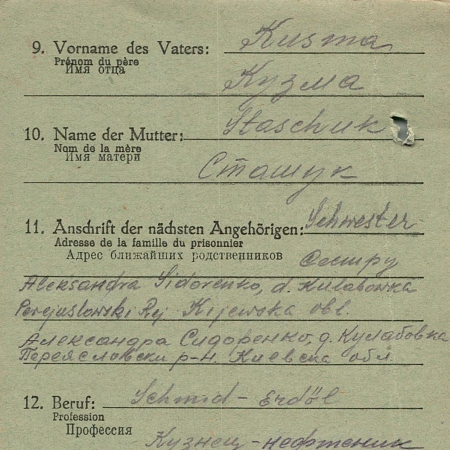 9. Vorname des Vaters: Kusma
Prénom du père
Имя отца
Кузма
10. Name der Mutter: Staschuk
Nom de la mère
Имя матери
Сташук
11. Anschrift der nächsten Angehörigen: Schwester
Adresse de la famille du prisonnier
Адрес ближайших родственников Сестру
Aleksandra Sidorenko, d. Kulabowka
Perejuslowski Rej Kijewska obl.
Александра Сидоренко, д. Кулабовка
Переясловски р-н. Киевска обл
12. Beruf: Schmid - Erdöl
Profession
Профессия
Кузнец - нефтеник